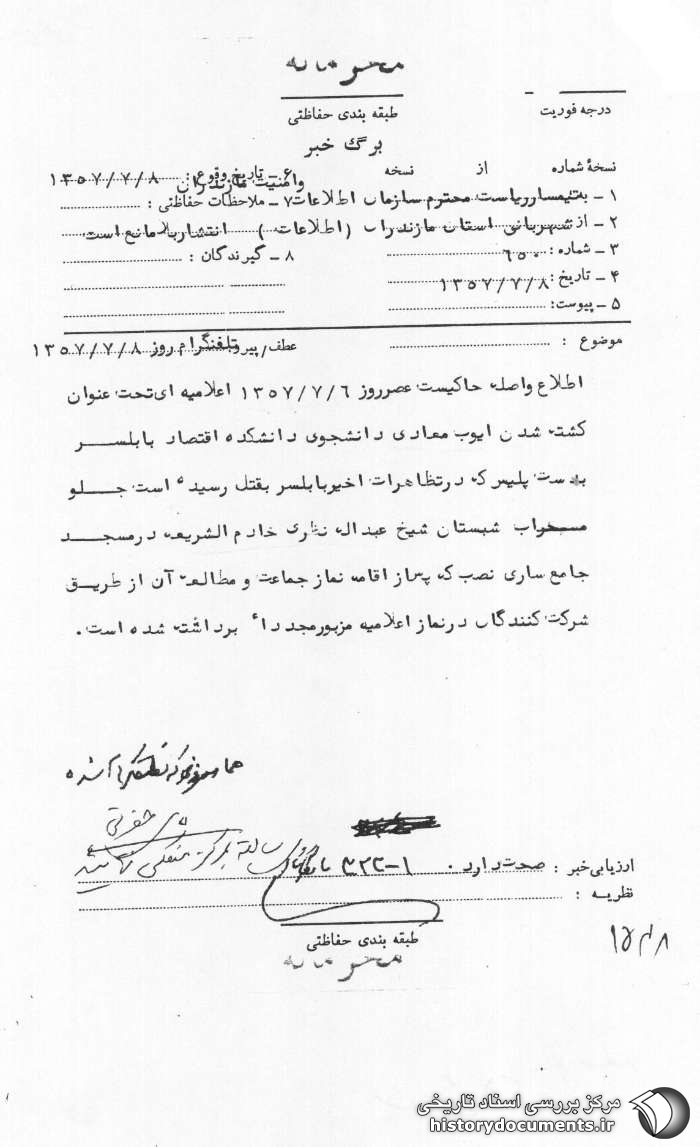 محرمانه
درجه فوریت
طبقه بندی حفاظتی
برگ خبر
نسخهٔ شماره از نسخه ۶ – تاریخ وقوع : ۱۳۵۷/۷/۸
وامنیت مازندران
۱ – به تیمسار ریاست محترم سازمان اطلاعات ۷ – ملاحظات حفاظتی :
۲ – از شهربانی استان مازندران (اطلاعات) انتشار بلامانع است
۳ – شماره : ۶۵۰ ۸ – گیرندگان :
۴ – تاریخ : ۱۳۵۷/۷/۸
۵ – پیوست :
موضوع : عطف/پیرو تلفنگرام روز ۱۳۵۷/۷/۸
اطلاع واصله حاکیست عصرروز ۱۳۵۷/۷/۶ اعلامیه ای تحت عنوان
کشته شدن ایوب معادی دانشجوی دانشکده اقتصاد بابلسر
بدست پلیس که درتظاهرات اخیربابلسر بقتل رسیده است جلو
محراب شبستان شیخ عبداله نظری خادم الشریعه درمسجد
جامع ساری نصب که پس از اقامه نماز جماعت و مطالعه آن از طریق
شرکت کنندگان درنماز اعلامیه مزبور مجدداً برداشته شده است.
ارزیابی خبر : صحت دارد . ۱-۳۲۲
نظریه :
طبقه بندی حفاظتی
محرمانه
مرکز بررسی اسناد تاریخی
historydocuments.ir